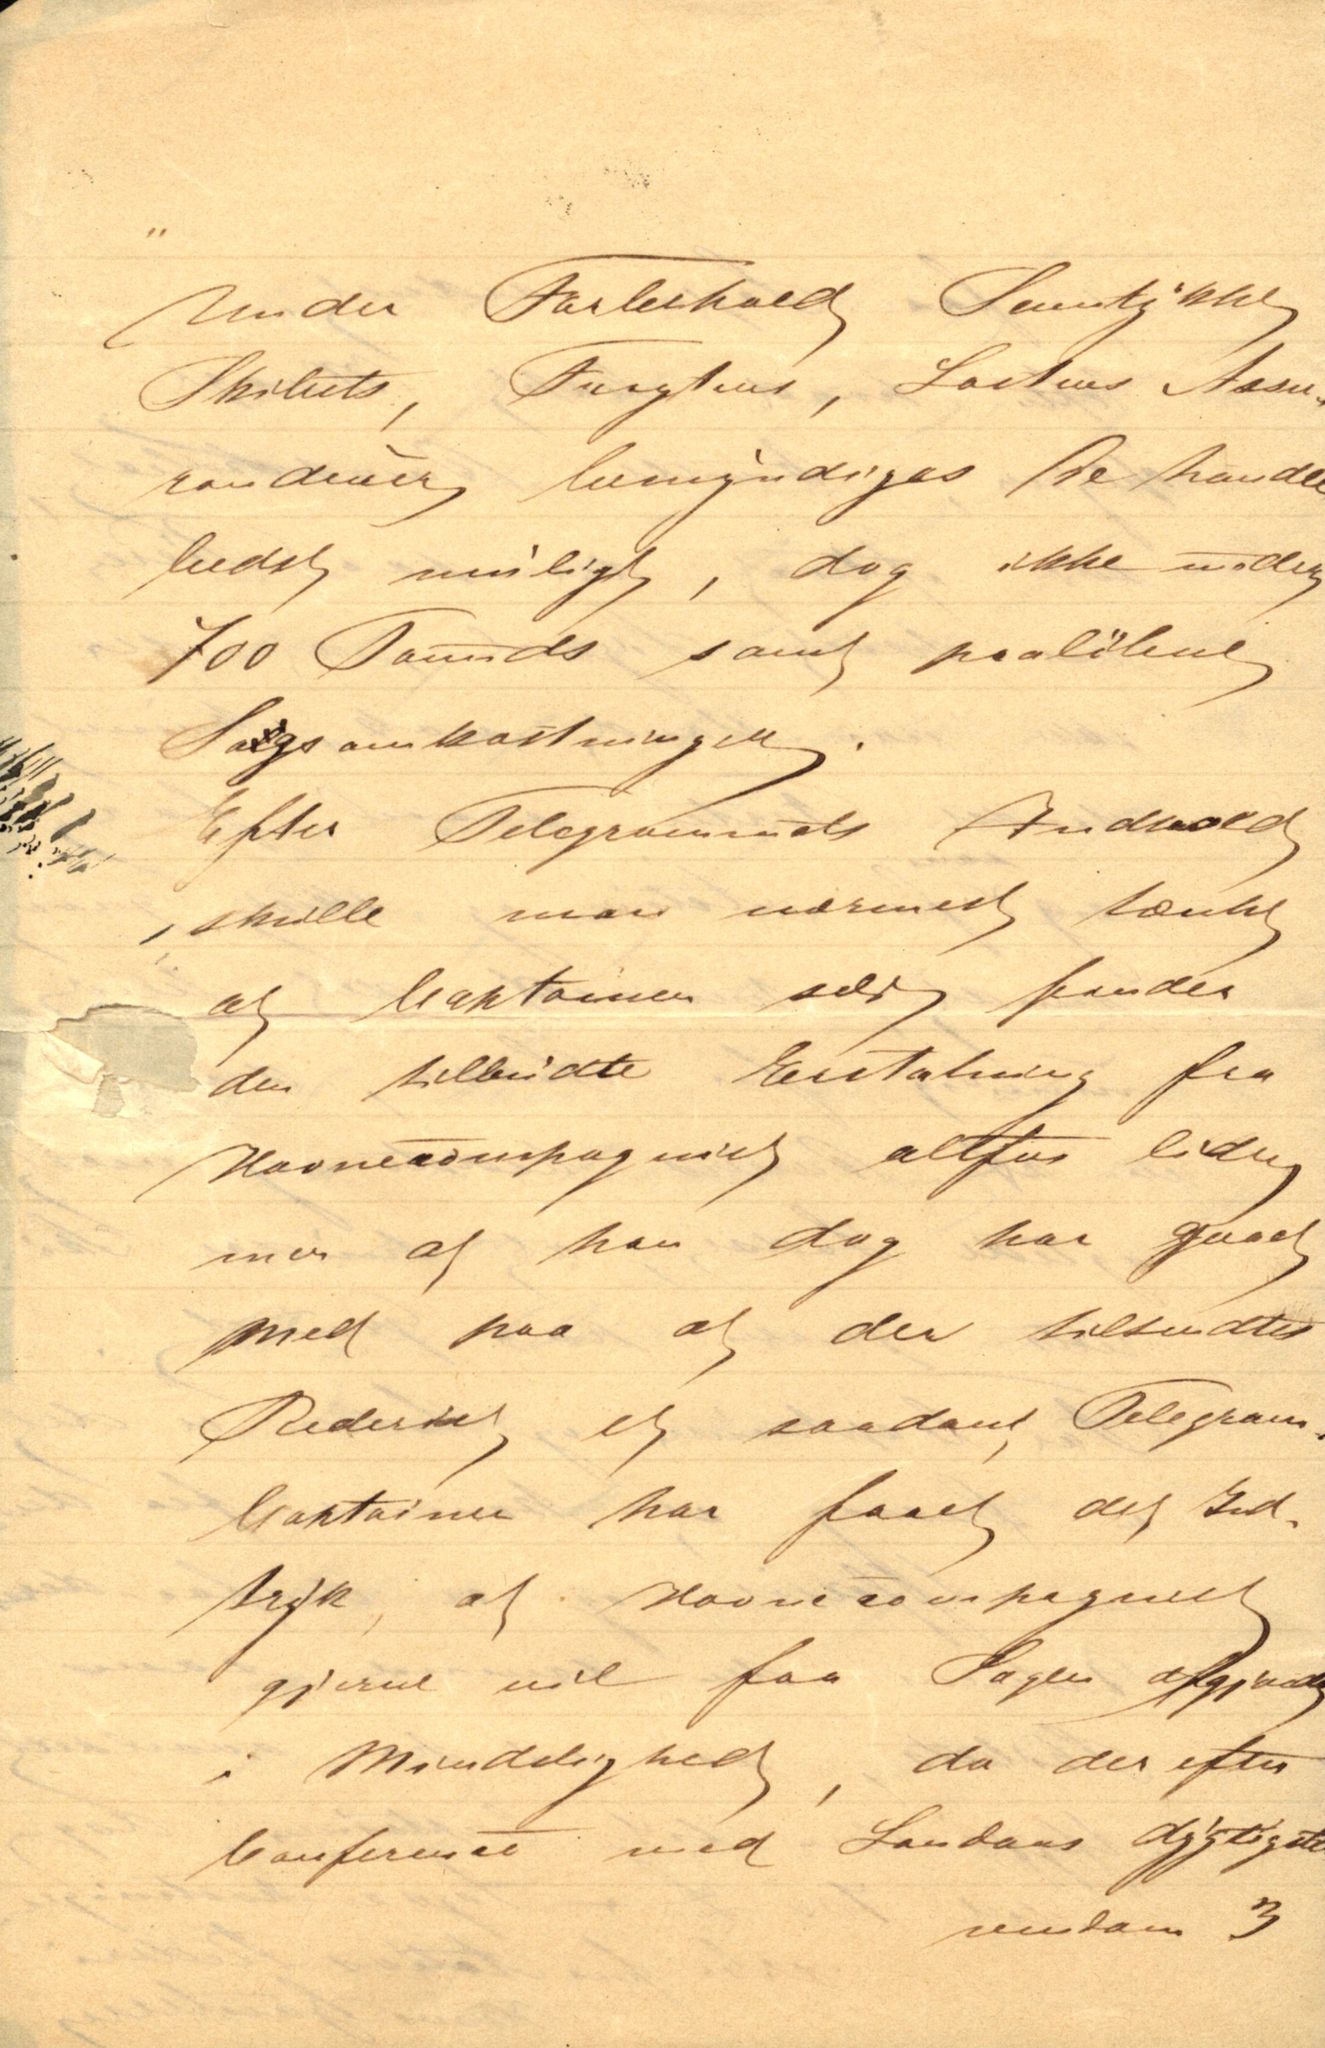 "
Under Forbehold Samtykke
Skibets, Fragtens, Lastens Assu-
randeurer bemyndiges De handle
bedst muligt, dog ikke under
700 Pounds samt paaløbne
Sagsomkostninger.
Efter Telegrammets Indhold
skulle man nærmest tænke
at Captainen selv fandt
den tilbudte Erstatning fra
Havnecompagniet altfor liden,
men at han dog har gaaet
med paa at der tilsendtes
Rederiet et saadant Telegram.
Captainen har faaet det Ind-
tryk, at Havnecompagniet
gjerne vil faa Sagen afgjordt
i Mindelighed, da der efter
Conference med Londons dygtigste
vendom 3